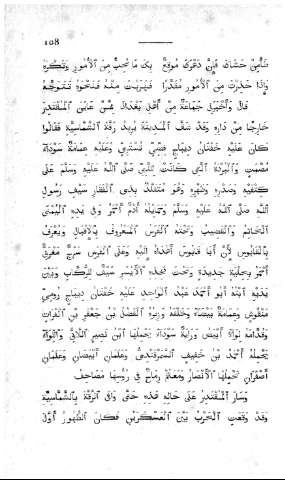 108
تأمن حشاك فإن دهرك موقع بك ما تحب من الأمور وتكره
وإذا حذرت من الأمور مقدرا فهربت منه فنحوه تتوجه
قال وأخبرني جماعة من أهل بغداد ممن عاين المقتدر
خارجا من داره وقد شق المدينة يريد رقة الشماسية فقالوا
كان عليه خفتان ديباج فضي تستري وعليه عمامة سوداء
مصمت والبردة التي كانت للنبي صلى الله عليه وسلم على
كتفيه وصدره وظهره وهو متقلد بذي الفقار سيف رسول
الله صلى الله عليه وسلم وحمائله أدم أحمر وفي يده اليمنى
الخاتم والقضيب وتحته الفرس المعروف بالإقبال ويعرف
بالقابوس لأن أبا قابوس أهداه إليه وعلى الفرس سرج مغربي
أحمر بحلية جديدة وتحت فخذه الأيسر سيف للركاب وبين
يديه ابنه أبو أحمد عبد الواحد عليه خفتان ديباج رومي
منقوش وعمامة بيضاء وخلفه وزيره الفضل بن جعفر بن الفرات
وقدامه لواء أبيض وراية سوداء يحملها ابن نصير اللابي واللواء
يحمله أحمد بن خفيف السمرقندي وعلمان أبيضان وعلمان
أصفران تحملها الأنصار ومعهم رماح في رؤسها مصاحف
وسار المقتدر على حاله هذه حتى وافى الرقة بالشماسية
وقد وقعت الحرب بين العسكرين فكان الظهور أول